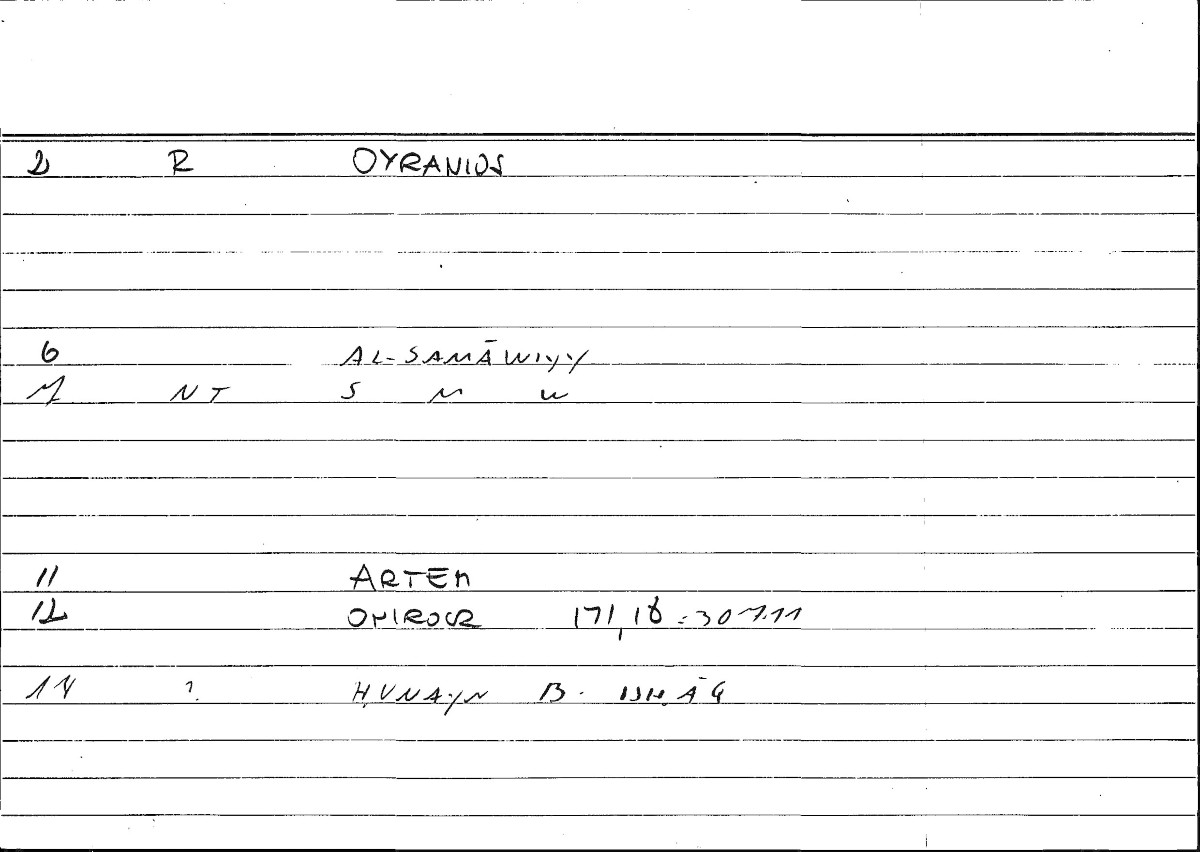 2 R OYRANIOS
6 AL-SAMĀWIYY
7 NT S M W
11 ARTEM
12 ONIROCR 171,18 = 307.11
14 ? ḤUNAYN B. ISḤĀQ